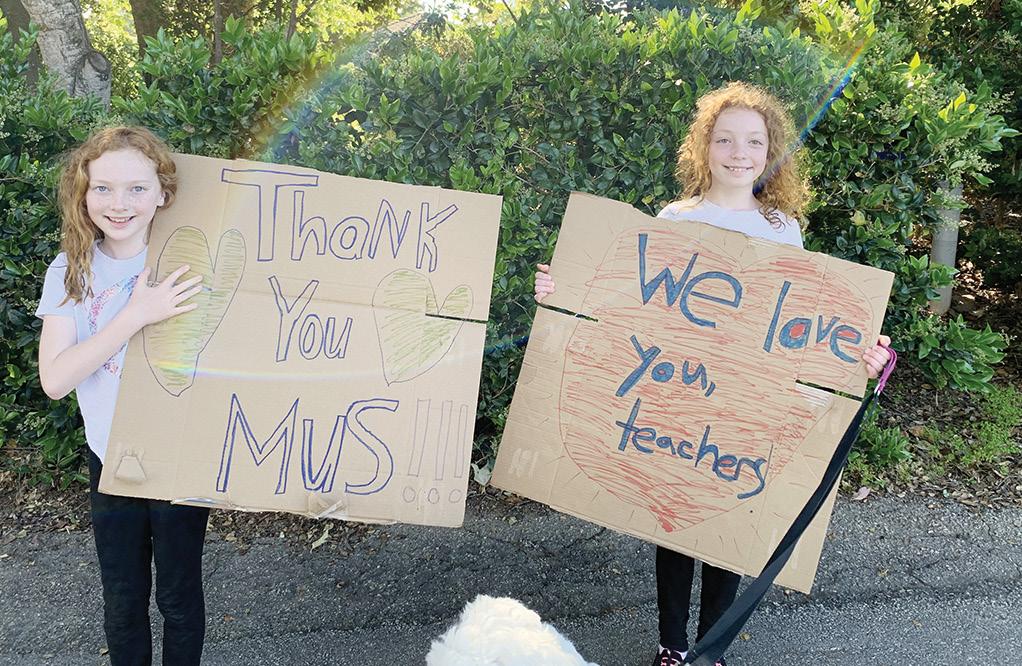 Thank
You
MUS!!!
We love
you,
teachers